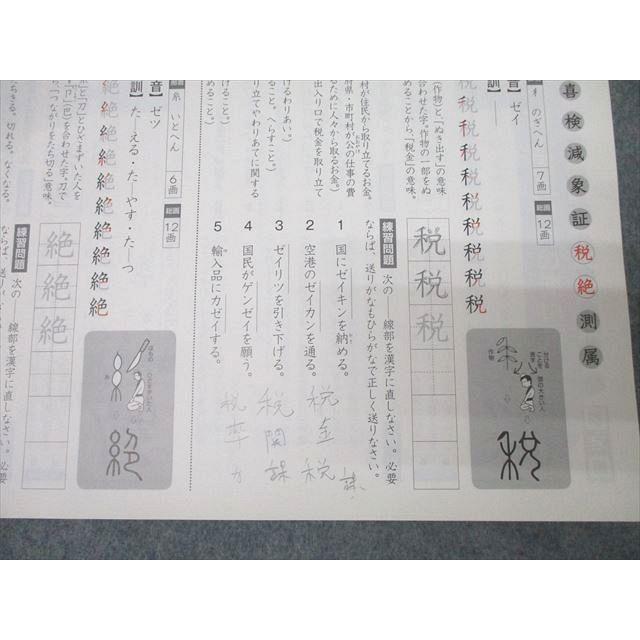 喜検減象証税絶測属
税
ノぎへん
7画
総画
12画
音】ゼイ
訓】
税税税税税税税税税
(作物)と「ぬき出す」の意味
合わせた字。作物の一部をぬ
めることから「税金」の意味。
村が住民から取り立てるお金。
府県・市町村が公の仕事の費
るために人々から取るお金。)
出入り口で税金を取り立て
けるわりあい。)
ること。へらすこと。)
り立てやわりあてに関する
めること。)
税税税
練習問題 次の──線部を漢字に直しなさい。必要
ならば、送りがなもひらがなで正しく送りなさい。
1 国にゼイキンを納める。
2 空港のゼイカンを通る。
3 ゼイリツを引き下げる。
4 国民がゲンゼイを願う。
5 輸入品にカゼイする。
税金
税関
税率
糸 いとへん
6画
総画
12画
音】ゼツ
訓】た─える・た─やす・た─つ
絶絶絶絶絶絶絶絶
糸」と「刀」とひざまずいた人を
「卩」(巴)を合わせた字。刀で
ら、「つながりをたち切る」意味。
ちきる。切れる。なくなる。
絶絶絶
練習問題 次の──線部を漢字に直しなさい。必要
ならば、送りがなもひらがなで正しく送りなさい。